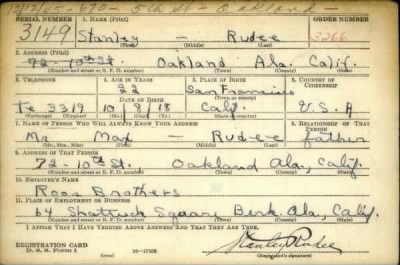 12/12/45 - 670 - 5th St - Oakland -
SERIAL NUMBER 1. NAME (Print) ORDER NUMBER
3149 Stanley — Rudee 3266
(First) (Middle) (Last)
2. ADDRESS (Print)
72 - 10th St. Oakland Ala. Calif.
(Number and street or R. F. D. number) (Town) (County) (State)
3. TELEPHONE 4. AGE IN YEARS 5. PLACE OF BIRTH 6. COUNTRY OF CITIZENSHIP
22 San Francisco
DATE OF BIRTH (Town or county)
Te 3319 10 9 18 Calif. U.S.A
(Exchange) (No.) (Mo.) (Day) (Yr.) (State or country)
7. NAME OF PERSON WHO WILL ALWAYS KNOW YOUR ADDRESS 8. RELATIONSHIP OF THAT PERSON
Mr. Max — Rudee father
(Mr., Mrs., Miss) (First) (Middle) (Last)
9. ADDRESS OF THAT PERSON
72 - 10th St. Oakland Ala, Calif.
(Number and street or R. F. D. number) (Town) (County) (State)
10. EMPLOYER'S NAME
Roos Brothers
11. PLACE OF EMPLOYMENT OR BUSINESS
64 Shattuck Square Berk. Ala, Calif.
(Number and street or R. F. D. number) (Town) (County) (State)
I AFFIRM THAT I HAVE VERIFIED ABOVE ANSWERS AND THAT THEY ARE TRUE.
REGISTRATION CARD
D. S. S. FORM 1 16—17105 Stanley Rudee
(Registrant's signature)